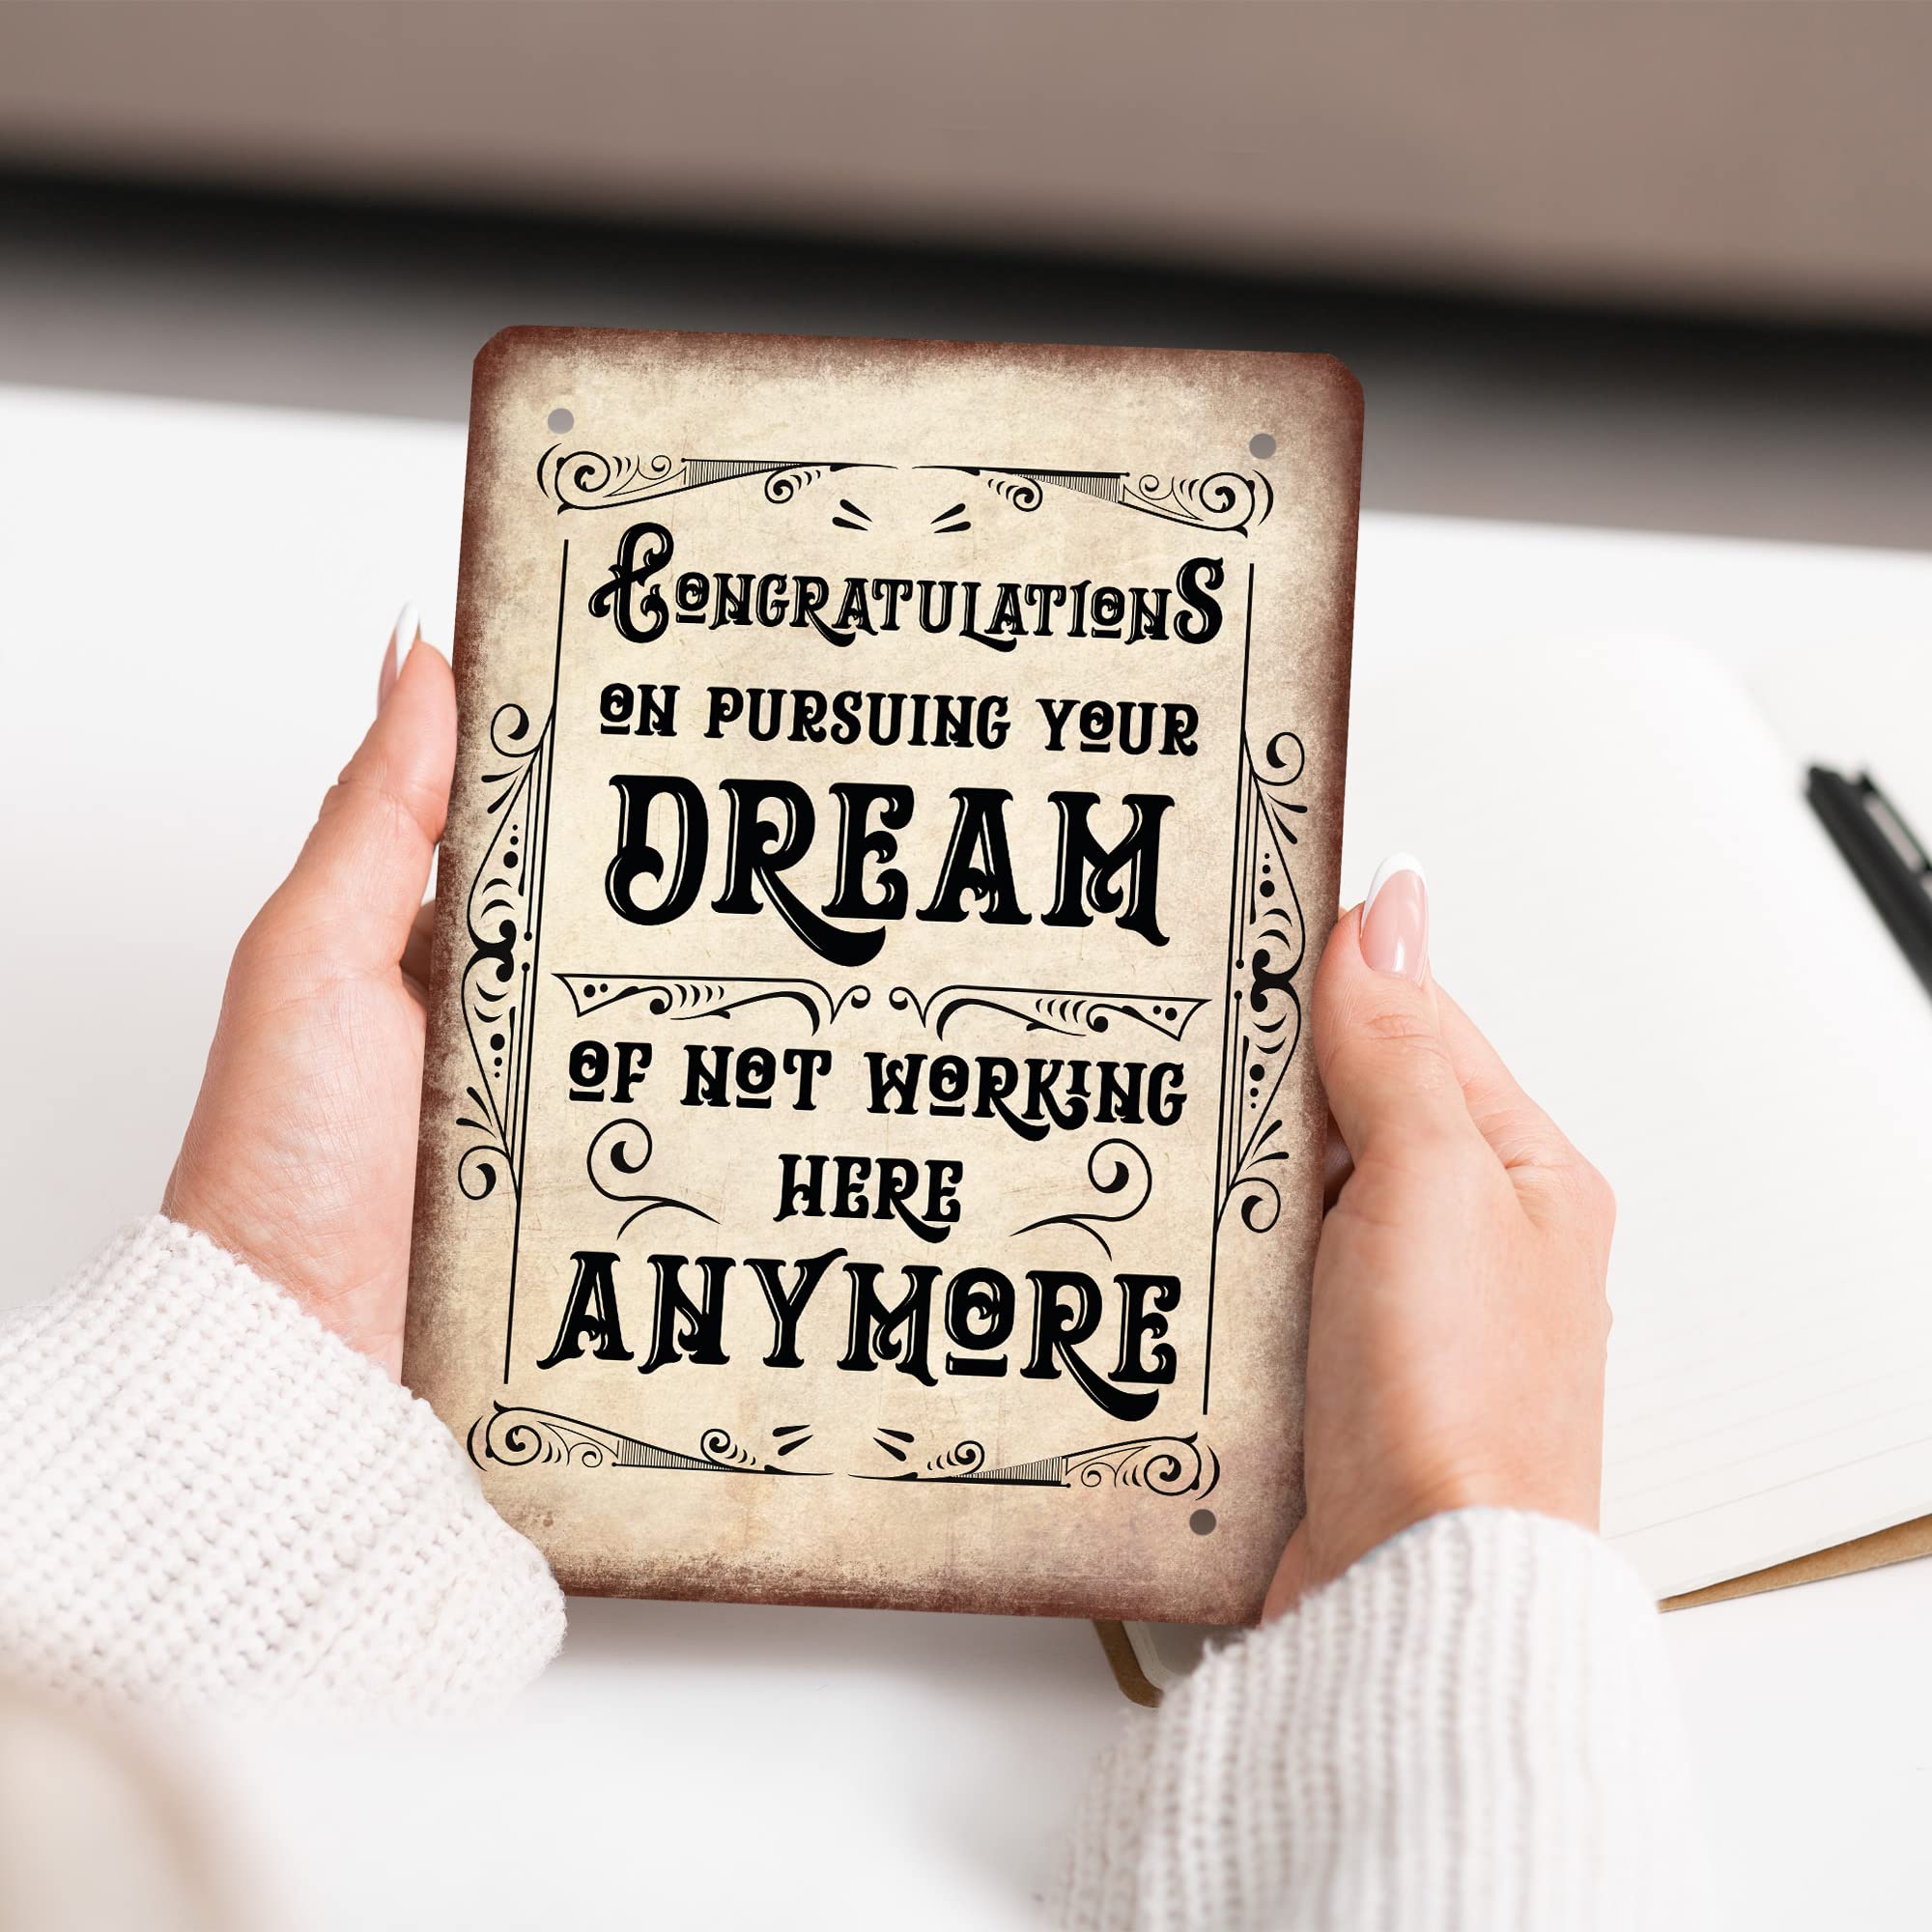 CONGRATULATIONS
ON PURSUING YOUR
DREAM
OF NOT WORKING
HERE
ANYMORE